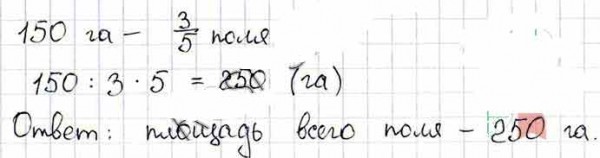 150 га – 3/5 поля
150 : 3 · 5 = 250 (га)
Ответ: площадь всего поля – 250 га.